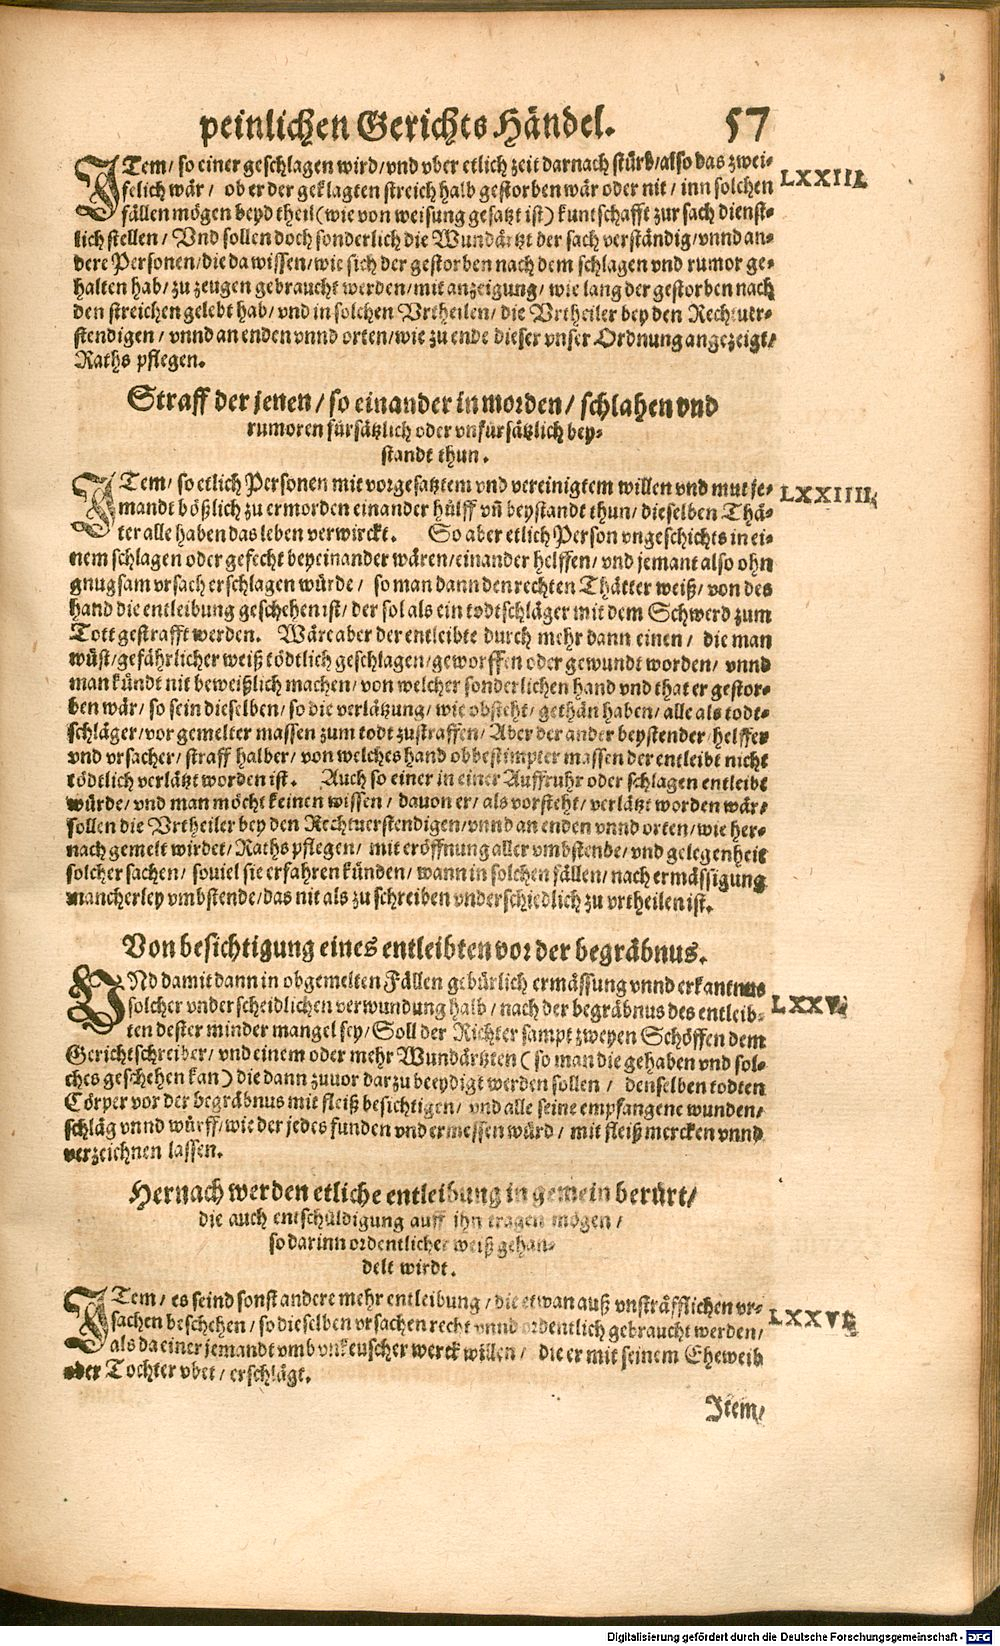 peinlichen Gerichts Händel. 57
ITem / so einer geschlagen wird / vnd vber etlich zeit darnach stürb / also das zwei-
felich wär / ob er der geklagten streich halb gestorben wär oder nit / inn solchen
LXXIII.
fällen mögen beyd theil (wie von weisung gesatzt ist) kuntschafft zur sach dienst-
lich stellen / Vnd sollen doch sonderlich die Wundärtzt der sach verständig / vnnd an-
dere Personen / die da wissen / wie sich der gestorben nach dem schlagen vnd rumor ge-
halten hab / zu zeugen gebraucht werden / mit anzeigung / wie lang der gestorben nach
den streichen gelebt hab / vnd in solchen Vrtheilen / die Vrtheiler bey den Rechtuer-
stendigen / vnnd an enden vnnd orten / wie zu ende dieser vnser Ordnung angezeigt /
Raths pflegen.
Straff der jenen / so einander in morden / schlahen vnd
rumoren fürsätzlich oder vnfürsätzlich bey-
standt thun.
ITem / so etlich Personen mit vorgesatztem vnd vereinigtem willen vnd mut je-
LXXIIII.
mandt bößlich zu ermorden einander hülff vn̄ beystandt thun / dieselben Thä-
ter alle haben das leben verwirckt. So aber etlich Person vngeschichts in ei-
nem schlagen oder gefecht beyeinander wären / einander helffen / vnd jemant also ohn
gnugsam vrsach erschlagen würde / so man dann den rechten Thätter weiß / von des
hand die entleibung geschehen ist / der sol als ein todtschläger mit dem Schwerd zum
Tott gestrafft werden. Wäre aber der entleibte durch mehr dann einen / die man
wüst / gefährlicher weiß tödtlich geschlagen / geworffen oder gewundt worden / vnnd
man kündt nit beweißlich machen / von welcher sonderlichen hand vnd that er gestor-
ben wär / so sein dieselben / so die verlätzung / wie obsteht / gethän haben / alle als todt-
schläger / vor gemelter massen zum todt zustraffen / Aber der ander beystender / helffer
vnd vrsacher / straff halber / von welches hand obbestimpter massen der entleibt nicht
tödtlich verlätzt worden ist. Auch so einer in einer Auffruhr oder schlagen entleibt
würde / vnd man möcht keinen wissen / dauon er / als vorsteht / verlätzt worden wär /
sollen die Vrtheiler bey den Rechtuerstendigen / vnnd an enden vnnd orten / wie her-
nach gemelt wirdet / Raths pflegen / mit eröffnung aller vmbstende / vnd gelegenheit
solcher sachen / souiel sie erfahren künden / wann in solchen fällen / nach ermässigung
mancherley vmbstende / das nit als zu schreiben vnderschiedlich zu vrtheilen ist.
Von besichtigung eines entleibten vor der begräbnus.
VNd damit dann in obgemelten Fällen gebürlich ermässung vnnd erkantnus
solcher vnderscheidlichen verwundung halb / nach der begräbnus des entleib-
LXXV.
ten dester minder mangel sey / Soll der Richter sampt zweyen Schöffen dem
Gerichtschreiber / vnd einem oder mehr Wundärtzten (so man die gehaben vnd sol-
ches geschehen kan) die dann zuuor darzu beeydigt werden sollen / denselben todten
Cörper vor der begräbnus mit fleiß besichtigen / vnd alle seine empfangene wunden /
schläg vnnd würff / wie der jedes funden vnd ermessen würd / mit fleiß mercken vnnd
verzeichnen lassen.
Hernach werden etliche entleibung in gemein berürt /
die auch entschüldigung auff ihn tragen mögen /
so darinn ordentlicher weiß gehan-
delt wirdt.
ITem / es seind sonst andere mehr entleibung / die etwan auß vnsträfflichen vr-
sachen beschehen / so dieselben vrsachen recht vnnd ordentlich gebraucht werden /
LXXVI.
als da einer jemandt vmb vnkeuscher werck willen / die er mit seinem Eheweib
oder Tochter vbet / erschlägt.
Item /
Digitalisierung gefördert durch die Deutsche Forschungsgemeinschaft - DFG